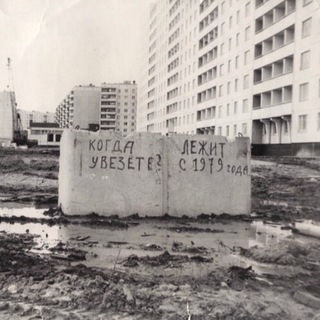 КОГДА
УВЕЗЕТЕ?
ЛЕЖИТ
С 1979 ГОДА